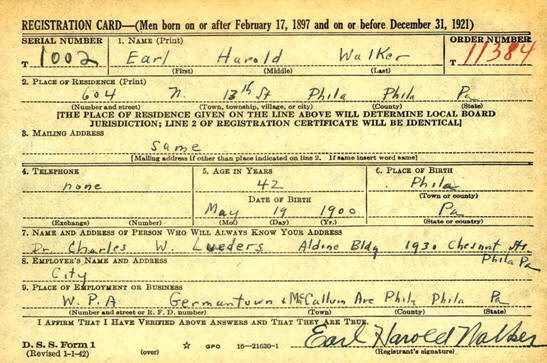 REGISTRATION CARD—(Men born on or after February 17, 1897 and on or before December 31, 1921)
SERIAL NUMBER 1. NAME (Print) ORDER NUMBER
T 1002 Earl Harold Walker T 11384
(First) (Middle) (Last)
2. PLACE OF RESIDENCE (Print)
604 N. 13th St Phila Phila Pa
(Number and street) (Town, township, village, or city) (County) (State)
[THE PLACE OF RESIDENCE GIVEN ON THE LINE ABOVE WILL DETERMINE LOCAL BOARD
JURISDICTION; LINE 2 OF REGISTRATION CERTIFICATE WILL BE IDENTICAL]
3. MAILING ADDRESS
Same
[Mailing address if other than place indicated on line 2. If same insert word same]
4. TELEPHONE 5. AGE IN YEARS 6. PLACE OF BIRTH
none 42 Phila
DATE OF BIRTH (Town or county)
May 19 1900 Pa
(Exchange) (Number) (Mo.) (Day) (Yr.) (State or country)
7. NAME AND ADDRESS OF PERSON WHO WILL ALWAYS KNOW YOUR ADDRESS
Dr. Charles W. Lueders Aldine Bldg 1930 Chesnnt Sts.
8. EMPLOYER'S NAME AND ADDRESS Phila Pa
City
9. PLACE OF EMPLOYMENT OR BUSINESS
W.P.A Germantown & McCallum Ave Phila Phila Pa
(Number and street or R. F. D. number) (Town) (County) (State)
I AFFIRM THAT I HAVE VERIFIED ABOVE ANSWERS AND THAT THEY ARE TRUE.
D. S. S. Form 1 Earl Harold Walker
(Revised 1-1-42) (over) ☆ GPO 16—21630-1 (Registrant's signature)